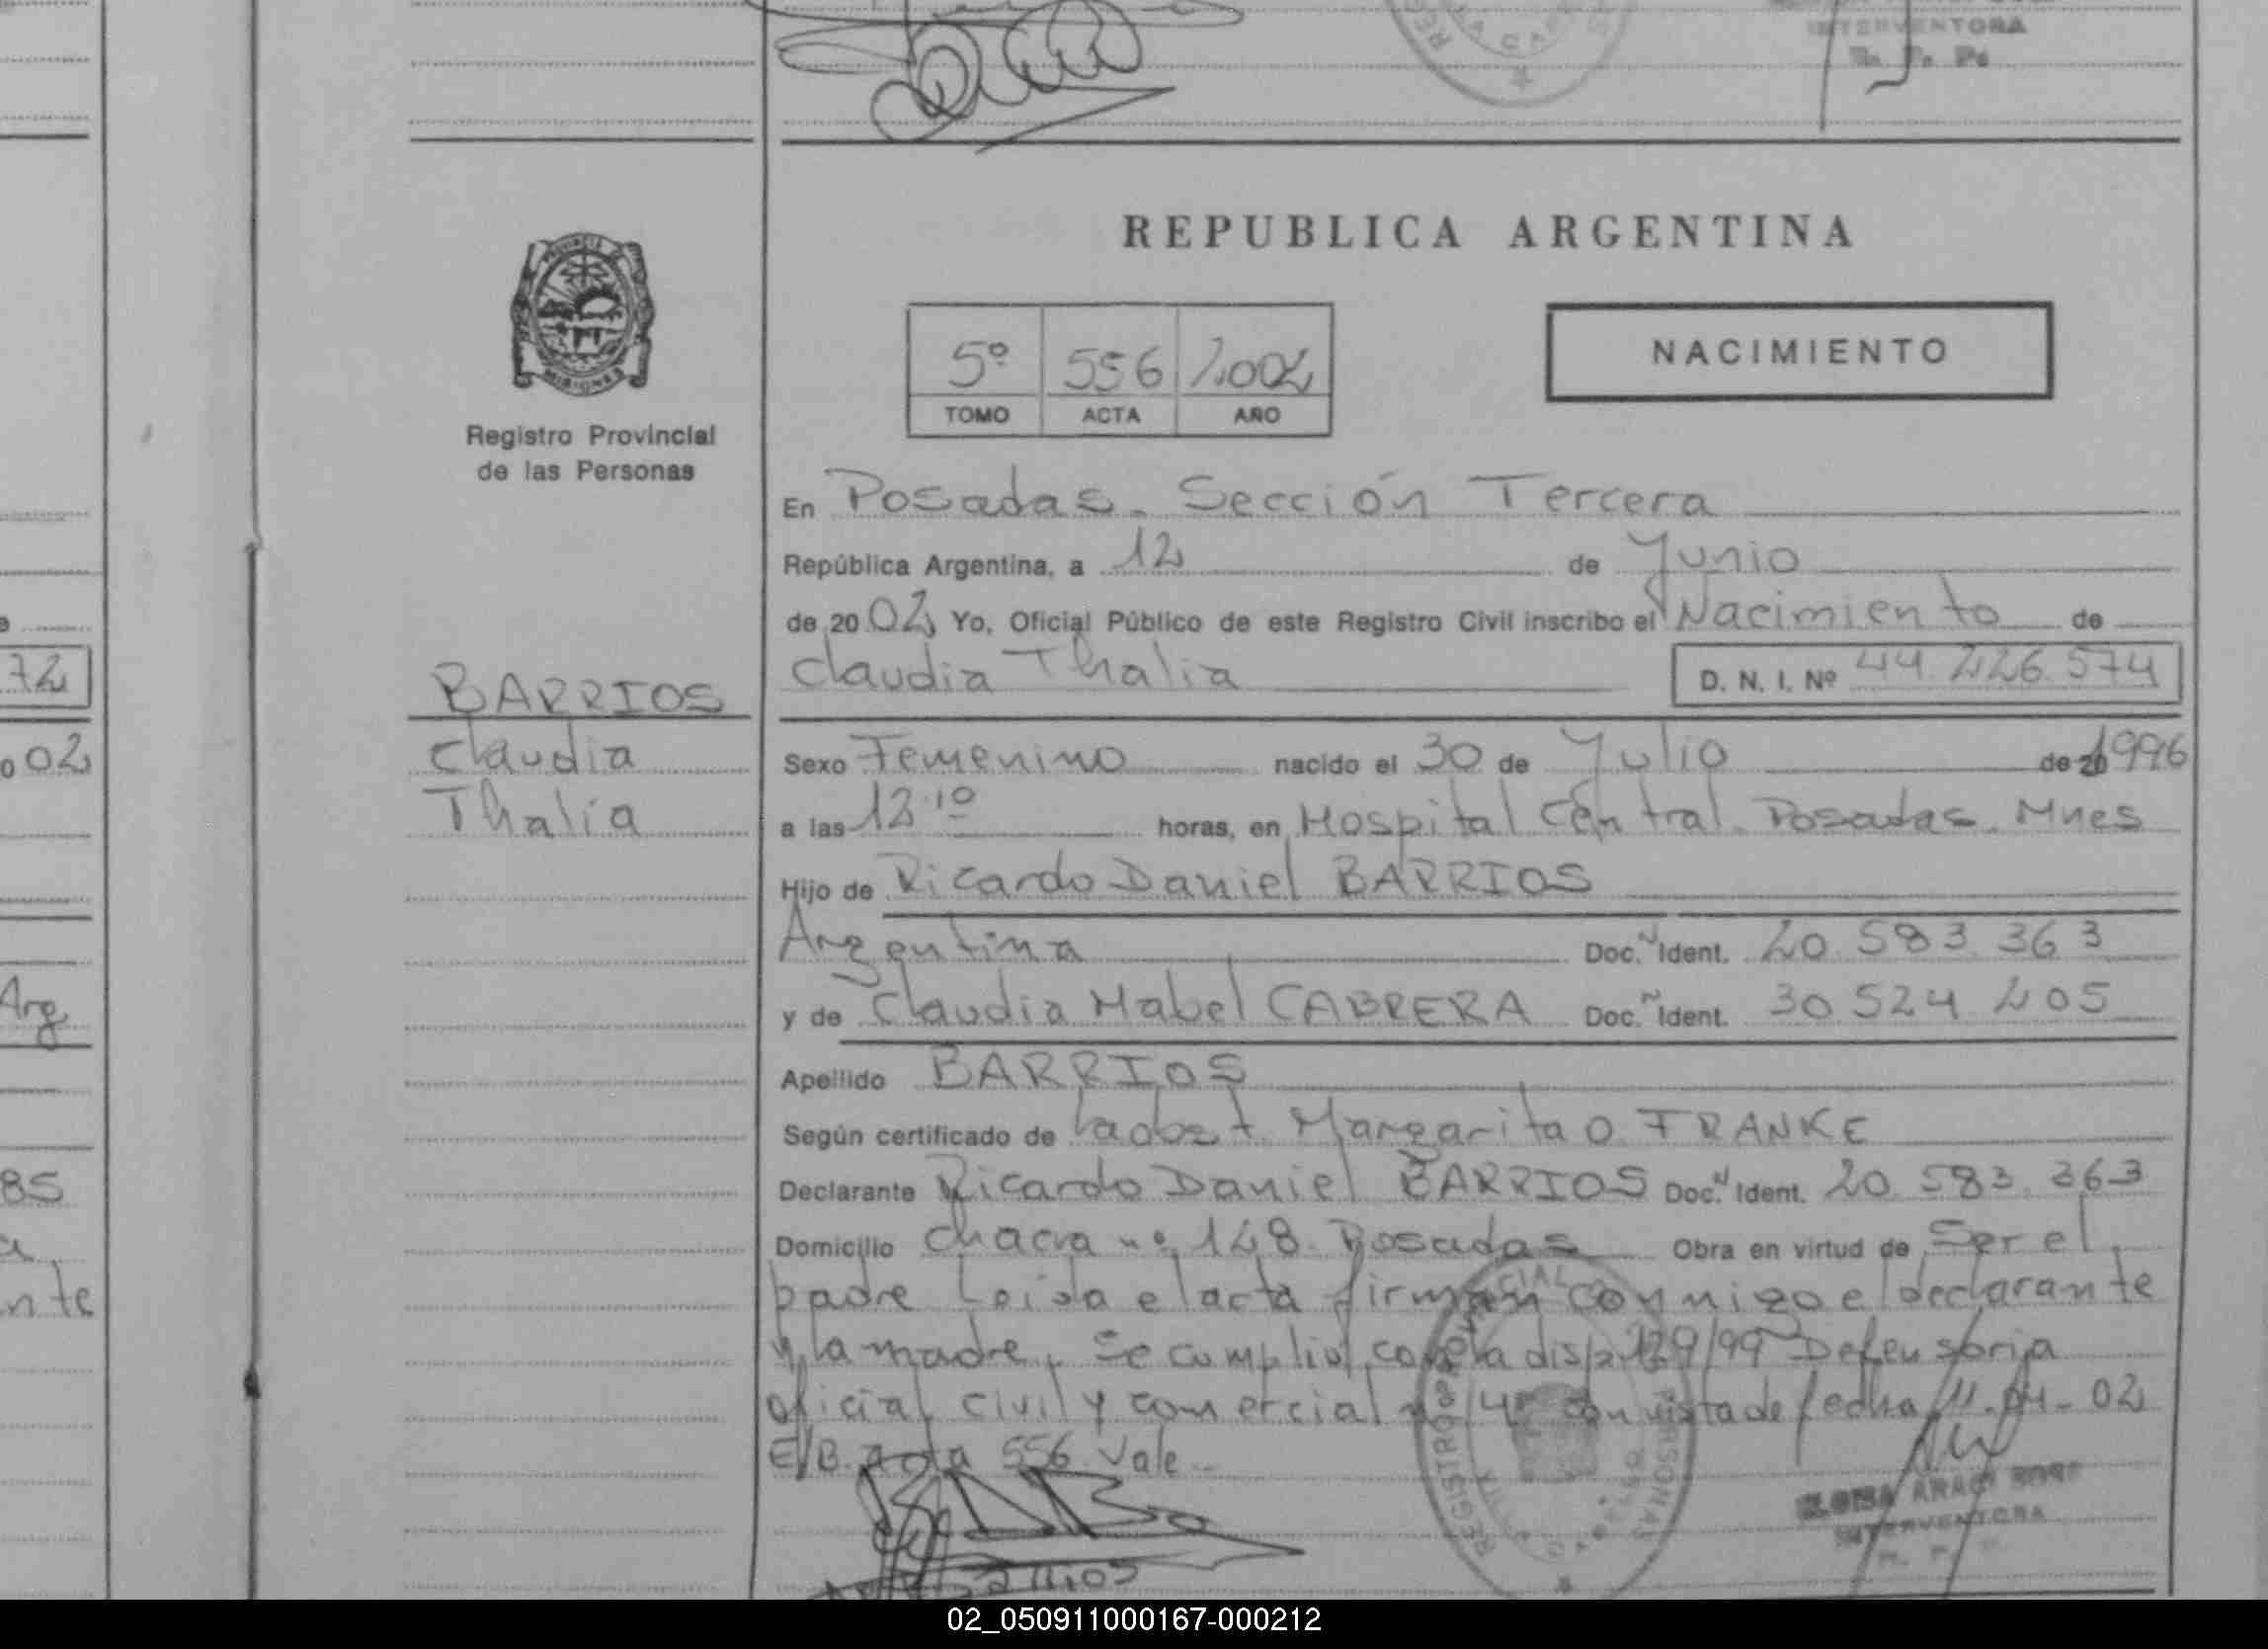 INTERVENTORA
REPUBLICA ARGENTINA
PROVINCIA DE
MISIONES
Registro Provincial
de las Personas
5º 556 2002
TOMO ACTA AÑO
NACIMIENTO
En Posadas. Sección Tercera
República Argentina, a 12 de Junio
de 2002 Yo, Oficial Público de este Registro Civil inscribo el Nacimiento de
Claudia Thalia D. N. I. Nº 44.226.574
BARRIOS
Claudia
Thalía
Sexo Femenino nacido el 30 de Julio de 1996
a las 12.10 horas, en Hospital Central. Posadas. Mnes
Hijo de Ricardo Daniel BARRIOS
Argentina Doc. Ident. 20.583.363
y de Claudia Mabel CABRERA Doc. Ident. 30.524.205
Apellido BARRIOS
Según certificado de Margarita O. FRANKE
Declarante Ricardo Daniel BARRIOS Doc. Ident. 20.583.363
Domicilio Chacra nº 148. Posadas Obra en virtud de Ser el
padre Leida el acta firman conmigo el declarante
y la madre. Se cumplió con la disp. 129/99 Defensoria
oficial civil y comercial nº 4 con vista de fecha 11-04-02
E/B. Acta 556. Vale
INTERVENTORA
72
02
Arg
85
a
nte
02_050911000167-000212